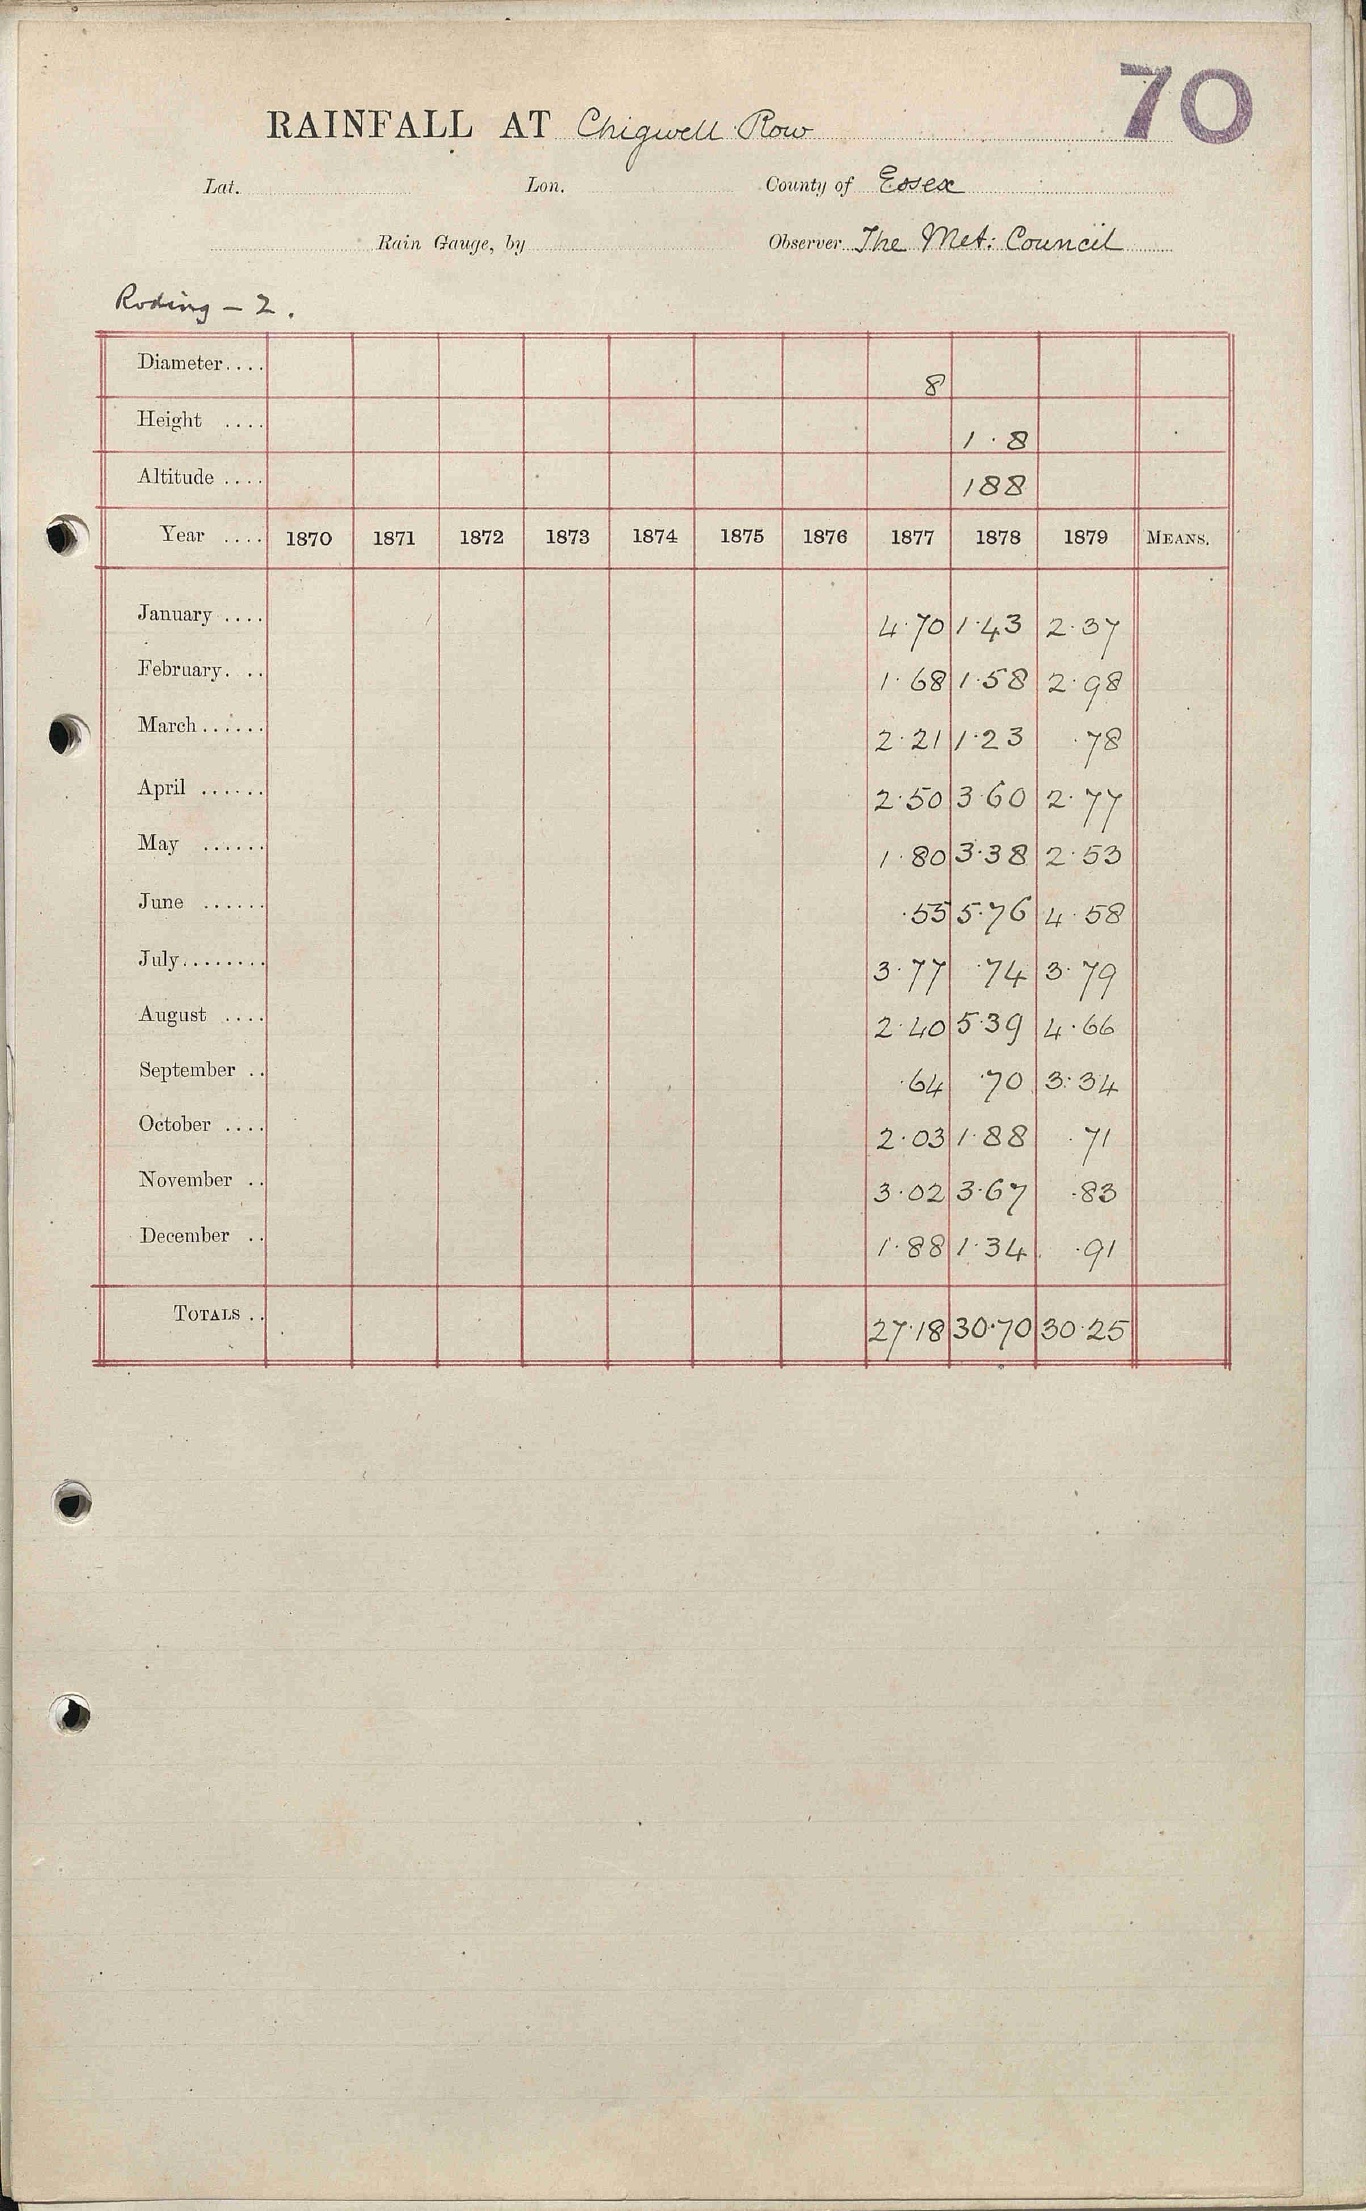 70
RAINFALL AT Chigwell Row
Lat. Lon. County of Essex
Rain Gauge, by Observer The Met: Council
Roding - 2.
Diameter.... 8
Height .... 1.8
Altitude .... 188
Year .... 1870 1871 1872 1873 1874 1875 1876 1877 1878 1879 MEANS.
January .... 4.70 1.43 2.37
February... 1.68 1.58 2.98
March...... 2.21 1.23 .78
April ...... 2.50 3.60 2.77
May ...... 1.80 3.38 2.53
June ...... .55 5.76 4.58
July........ 3.77 .74 3.79
August .... 2.40 5.39 4.66
September .. .64 .70 3.34
October .... 2.03 1.88 .71
November .. 3.02 3.67 .83
December .. 1.88 1.34 .91
TOTALS .. 27.18 30.70 30.25